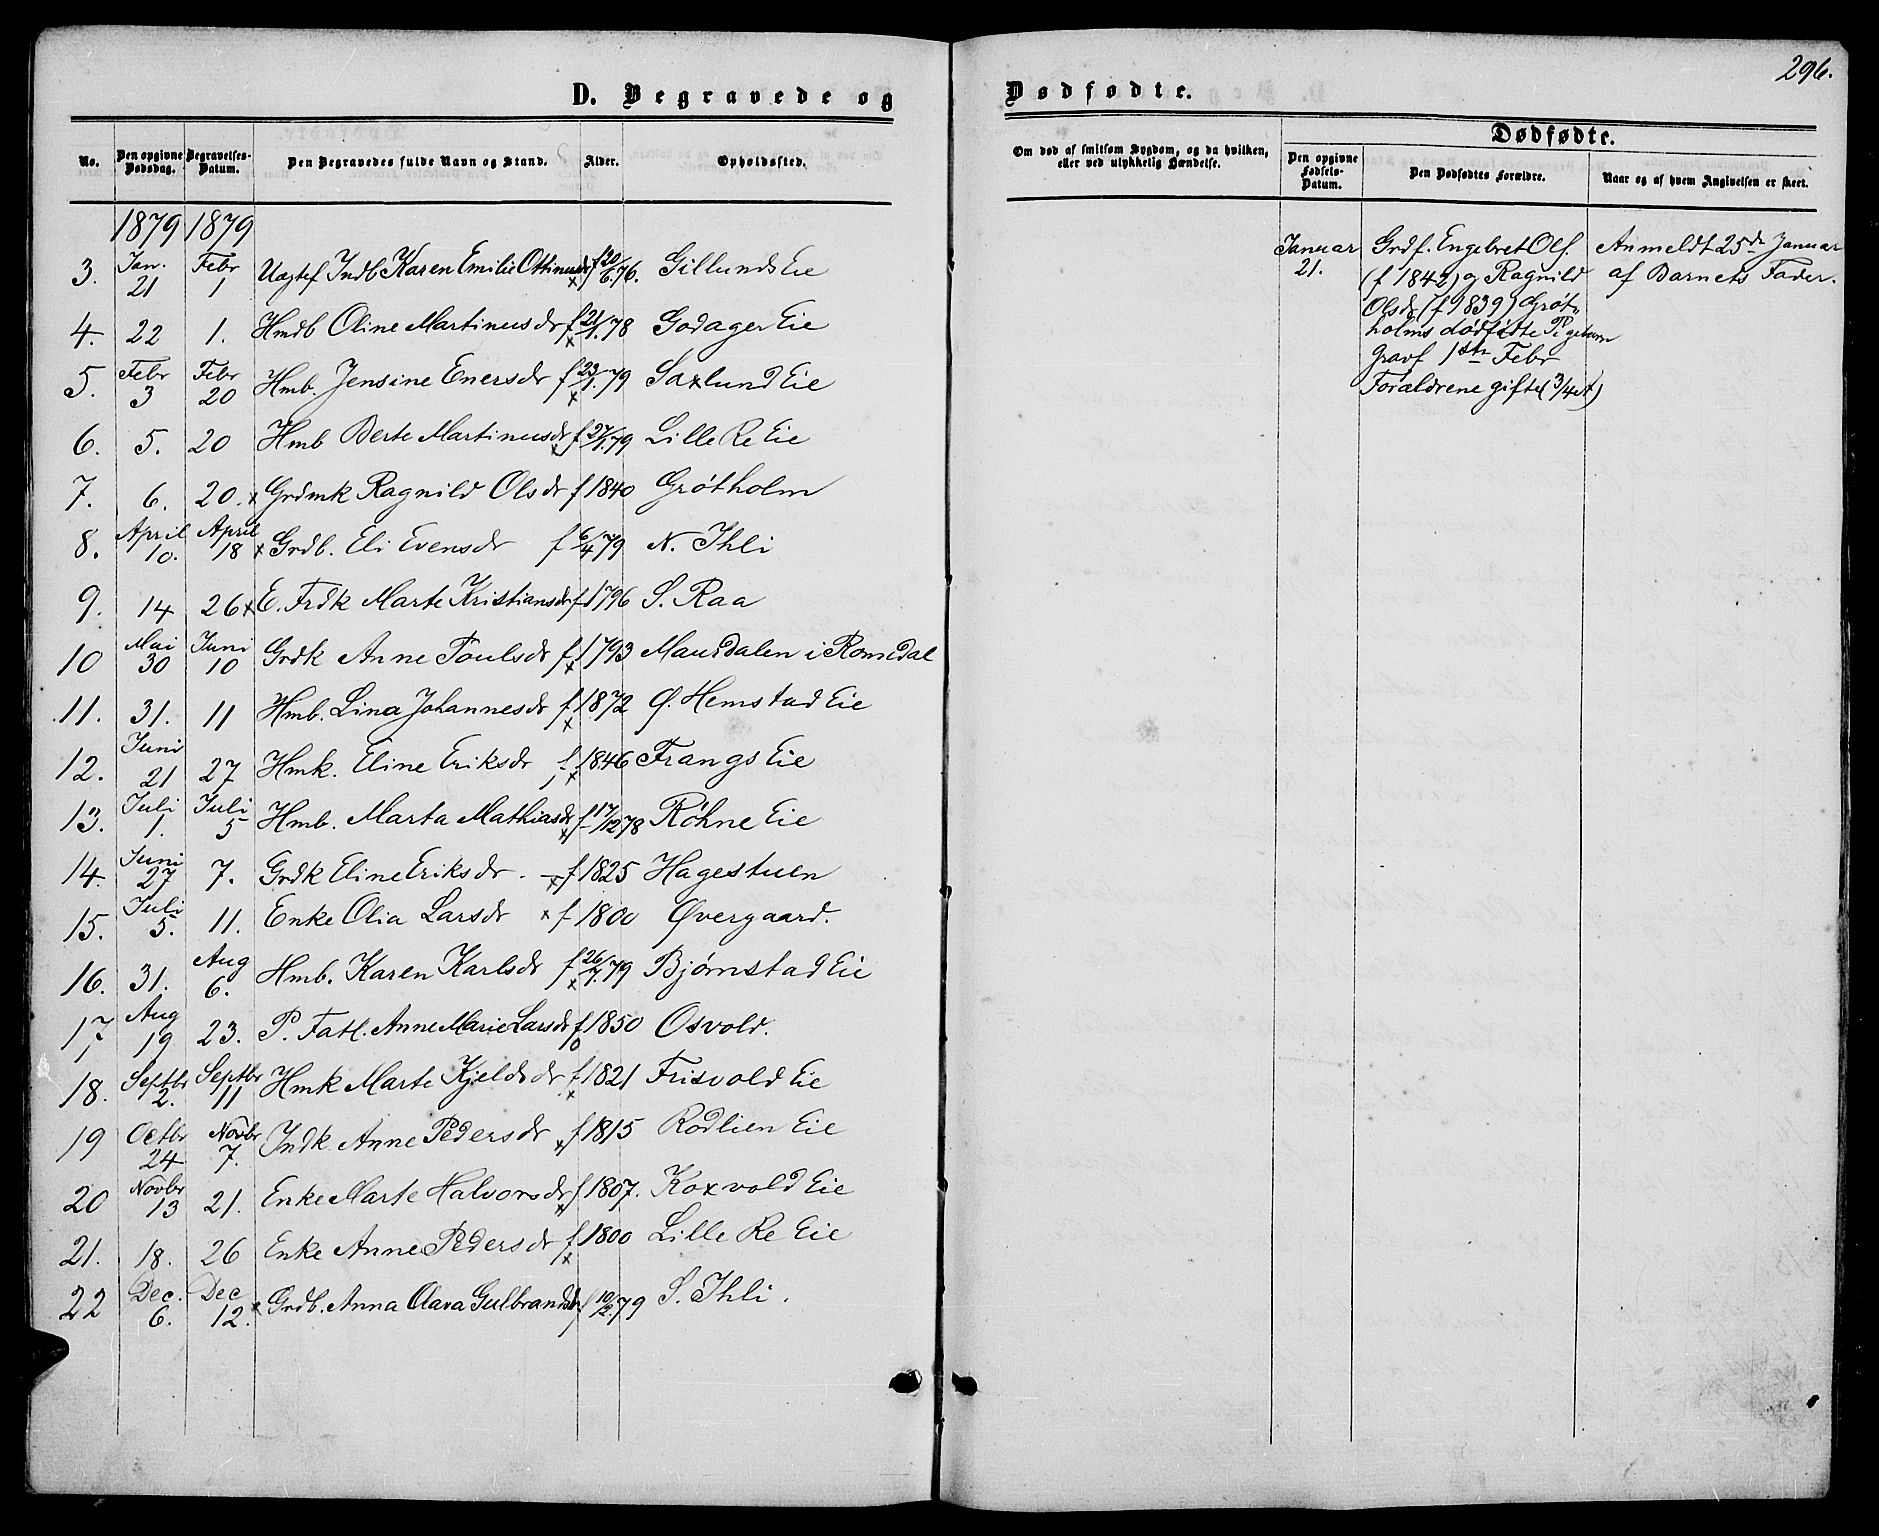 D. Begravede og
No. Den opgivne Dødsdag. Begravelses-Datum. Den Begravedes fulde Navn og Stand. Alder. Opholdssted.
1879 1879
3. Jan. 21 Febr 1 Uægtef Indb Karen Emilie Ottinusdr f 20/6.76. Gillunds Eie
4. 22 1. Hmdb Oline Martinusdr f 21/1.78 Godager Eie
5. Febr 3 Febr 20 Hmb. Jensine Enersdr f 23/1.79 Saxlund Eie
6. 5. 20 Hmb Berte Martinusdr f 27/1.79 Lille Re Eie
7. 6. 20. x Grdmk Ragnild Olsdr f 1840 Grøtholm
8. April 10. April 18 x Grdb. Eli Evensdr f 6/4 79 N. Ihli
9. 14 26 x E. Frdk Marte Kristiansdr f 1796 S. Raa
10 Mai 30 Juni 10 Grdk Anne Poulsdr f 1793 Maurdalen i Romedal
11. 31. 11 Hmb. Lina Johannesdr f 1872 Ø. Hemstad Eie
12. Juni 21 27 Hmk. Eline Eriksdr f 1846 Frangs Eie
13. Juli 1. Juli 5 Hmb. Marta Mathiasdr f 17/12 78 Røhne Eie
14. Juni 27 7. Grdk Eline Eriksdr. x f 1825 Hagestuen
15. Juli 5. 11. Enke Olia Larsdr x f 1800 Øvergaard.
16. 31. Aug 6. Hmb. Karen Karlsdr f 26/7.79 Bjørnstad Eie
17, Aug 19 23. P. Fatl. Anne Marie Larsdr f 1850 Osvold.
18. Septbr 2. Septbr 11 Hmk Marte Kjeldsdr f 1821 Frisvold Eie
19 Octbr 24 Novbr 7. Indk Anne Pedersdr x f 1815 Rødlien Eie
20 Novbr 13 21. Enke Marte Halvorsdr f 1807. Koxvold Eie
21. 18. 26 Enke Anne Pedersdr f 1800 Lille Re Eie
22 Dec. 6. Dec 12. x Grdb. Anna Olava Gulbrandsdr f 10/2.79 S. Ihli.
296.
Dødfødte.
Dødfødte.
Om død af smitsom Sygdom, og da hvilken,
eller ved ulykkelig Hændelse.
Den opgivne Fødsels-Datum. Den Dødfødtes Forældre. Naar og af hvem Angivelsen er skeet.
Januar 21. Grdf. Engebret Ols. Anmeldt 25de Januar
(f 1842) og Ragnild af Barnets Fader.
Olsdr (f 1839) Grøt-
holms dødfødte Pigebarn
Gravf 1ste Febr
Forældrene gifte (3/4 at)